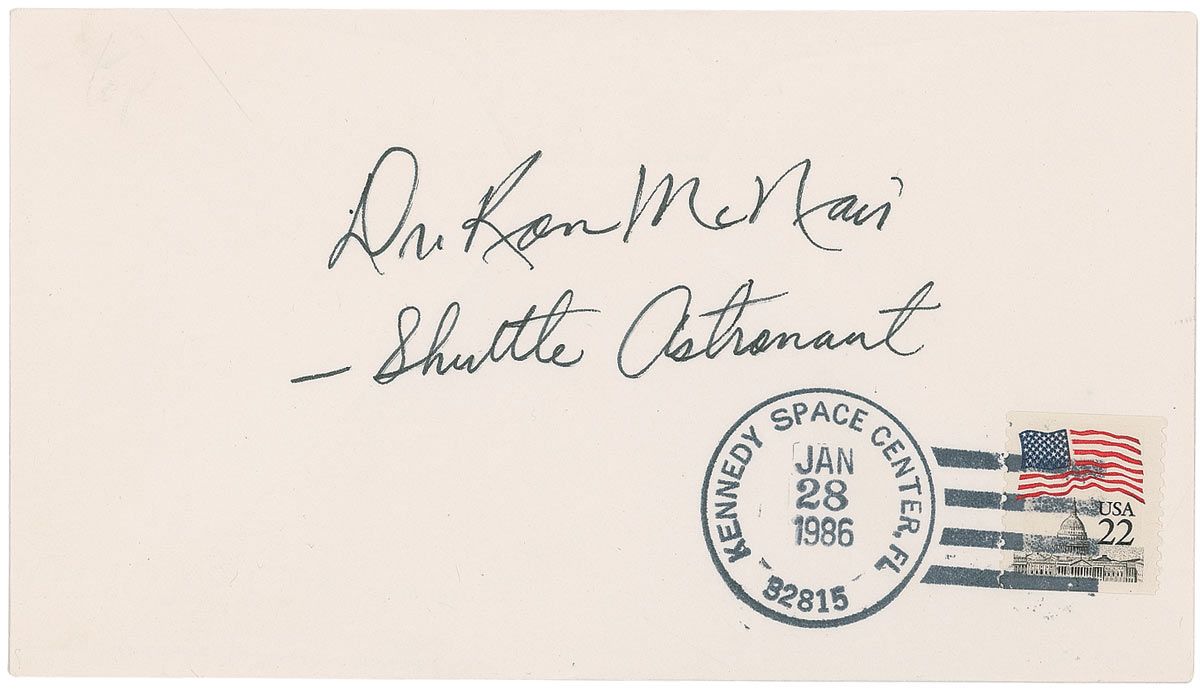 Dr. Ron McNair
— Shuttle Astronaut
KENNEDY SPACE CENTER, FL
JAN
28
1986
32815
USA
22